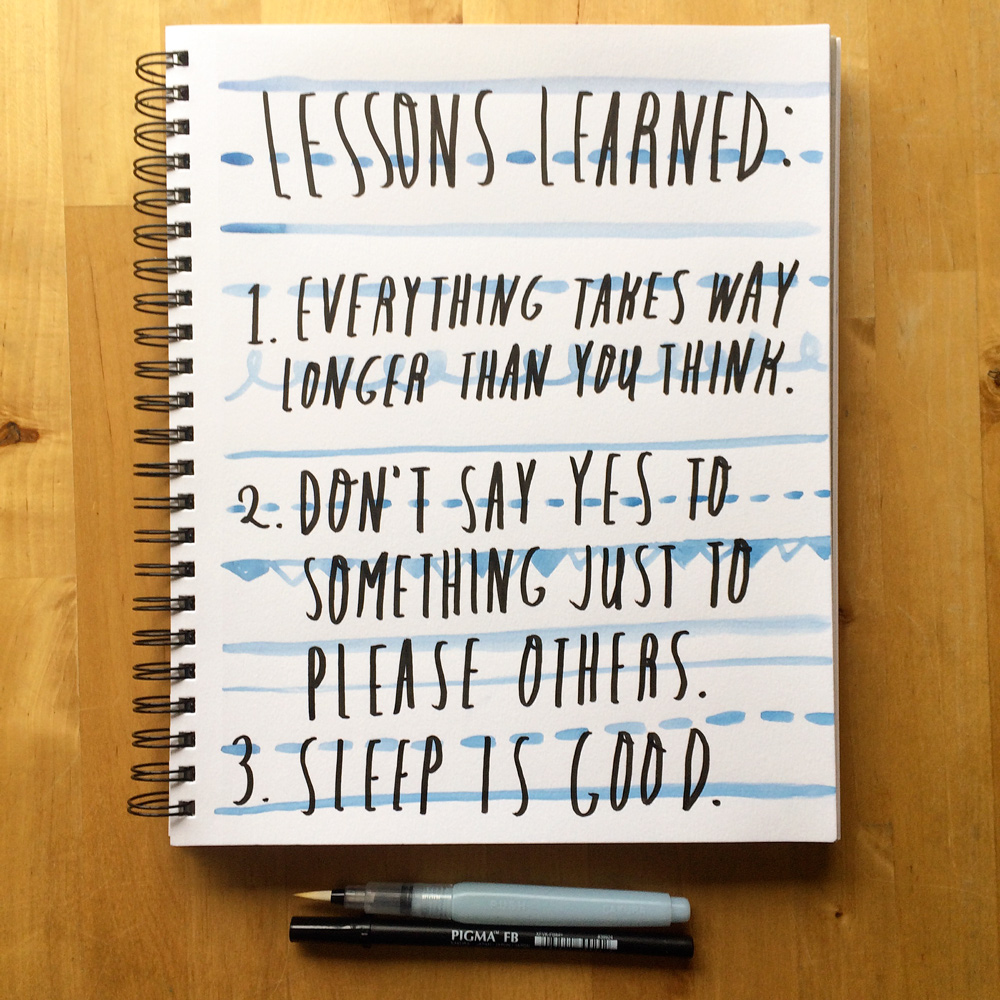 LESSONS LEARNED:
1. EVERYTHING TAKES WAY
LONGER THAN YOU THINK.
2. DON'T SAY YES TO
SOMETHING JUST TO
PLEASE OTHERS.
3. SLEEP IS GOOD.
PIGMA™ FB